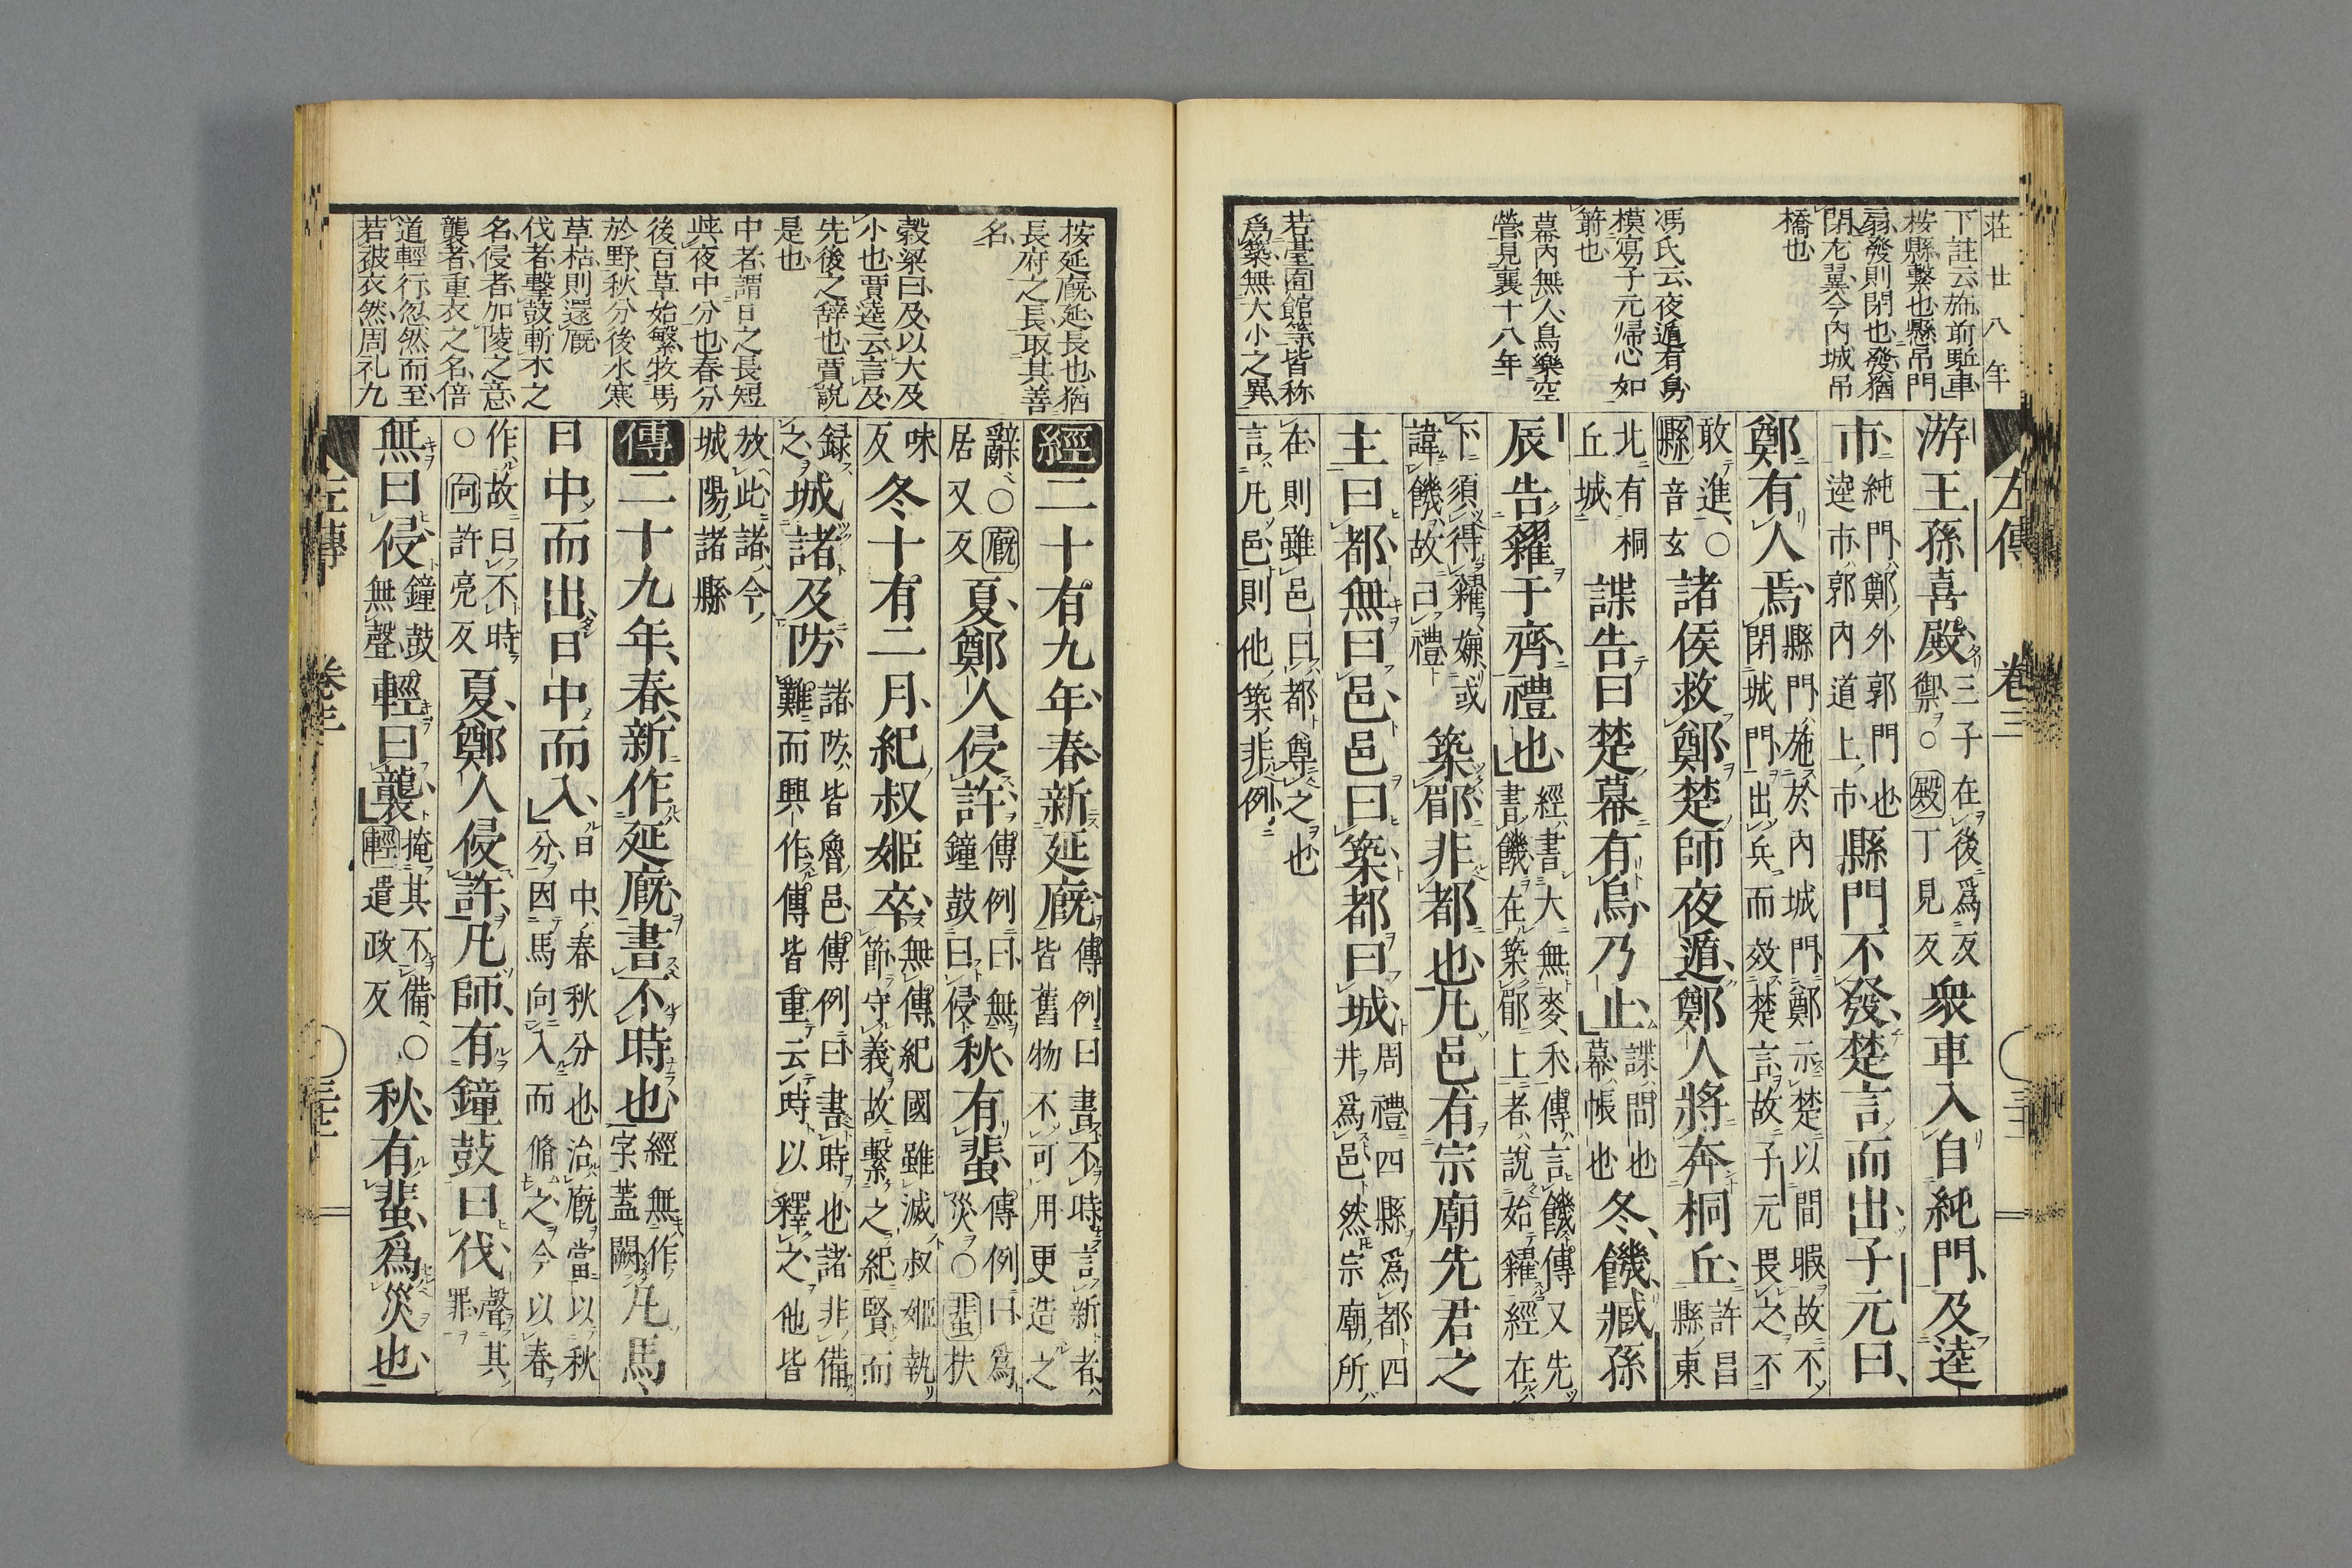 莊廿八年
下註云施前駈車
按縣繫也懸吊門
扇發則閉也發猶
閉左翼今内城吊
橋也
馮氏云夜遁有烏
模寫子元歸心如
箭也
幕内無人烏樂空
營見襄十八年
若臺囿館等皆称
爲築無大小之異
左傳 卷三
游王孫喜殿三子在後爲反禦○殿丁見反衆車入自純門及逵
市純門鄭外郭門也逵市郭内道上市縣門不發楚言而出子元曰
鄭有人焉縣門施於内城門鄭示楚以間暇故不閉城門出兵而效楚言故子元畏之不
敢進○縣音玄諸侯救鄭楚師夜遁鄭人將奔桐丘許昌縣東
北有桐丘城諜告曰楚幕有烏乃止諜間也幕帳也冬饑臧孫
辰告糴于齊禮也經書大無麥禾傳言饑傳又先書饑在築郿上者說始糴經在
下須得糴嫌或諱饑故曰禮築郿非都也凡邑有宗廟先君之
主曰都無曰邑邑曰築都曰城周禮四縣爲都四井爲邑然宗廟所
在則雖邑曰都尊之也言凡邑則他築非例
按延廐延長也猶
長府之長取其善
名
穀梁曰及以大及
小也賈逵云言及
先後之辞也賈説
是也
中者謂日之長短
與夜中分也春分
後百草始繁牧馬
於野秋分後水寒
草枯則還廐
伐者擊鼓斬木之
名侵者加陵之意
襲者重衣之名倍
道輕行忽然而至
若披衣然周礼九
經二十有九年春新延廐傳例曰書不時言新者皆舊物不可用更造之
辭○廐居又反夏鄭人侵許傳例曰無鐘鼓曰侵秋有蜚傳例曰爲災○蜚扶
味反冬十有二月紀叔姬卒無傳紀國雖滅叔姬執節守義故繫之紀賢而
録之城諸及防諸防皆魯邑傳例曰書時也諸非備難而興作傳皆重云時以釋之他皆
放此諸今城陽諸縣
傳二十九年春新作延廐書不時也經無作字蓋闕凡馬
日中而出日中而入日中春秋分也治廐當以秋分因馬向入而脩之今以春
作故曰不時○向許亮反夏鄭人侵許凡師有鐘鼓曰伐聲其罪
無曰侵鐘鼓無聲輕曰襲掩其不備○輕遣政反秋有蜚爲災也
左傳 卷三